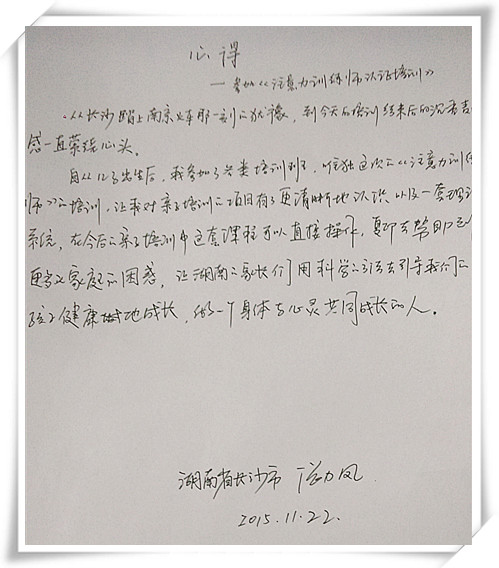 心得
——参加《注意力训练师认证培训》
从长沙踏上南京火车那一刻的犹豫，到今天的培训结束后的沉甸甸
感一直萦绕心头。
自从儿子出生后，我参加了各类培训班，唯独这次的《注意力训练
师》的培训，让我对亲子培训的项目有了更清晰地认识以及一套理论
系统，在今后的亲子培训中这套课程可以直接操作，真正去帮助
更多家庭的困惑，让湖南的家长们用科学的方法去引导我们的
孩子健康地成长，做一个身体与心灵共同成长的人。
湖南省长沙市 力凤
2015.11.22.